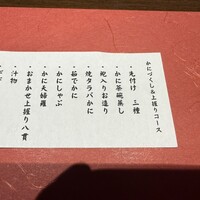 かにづくし＆上握りコース
・先付け　三種
・かに茶碗蒸し
・鮑入りお造り
・焼タラバかに
・茹でかに
・かにしゃぶ
・かに天婦羅
・おまかせ上握り八貫
・汁物